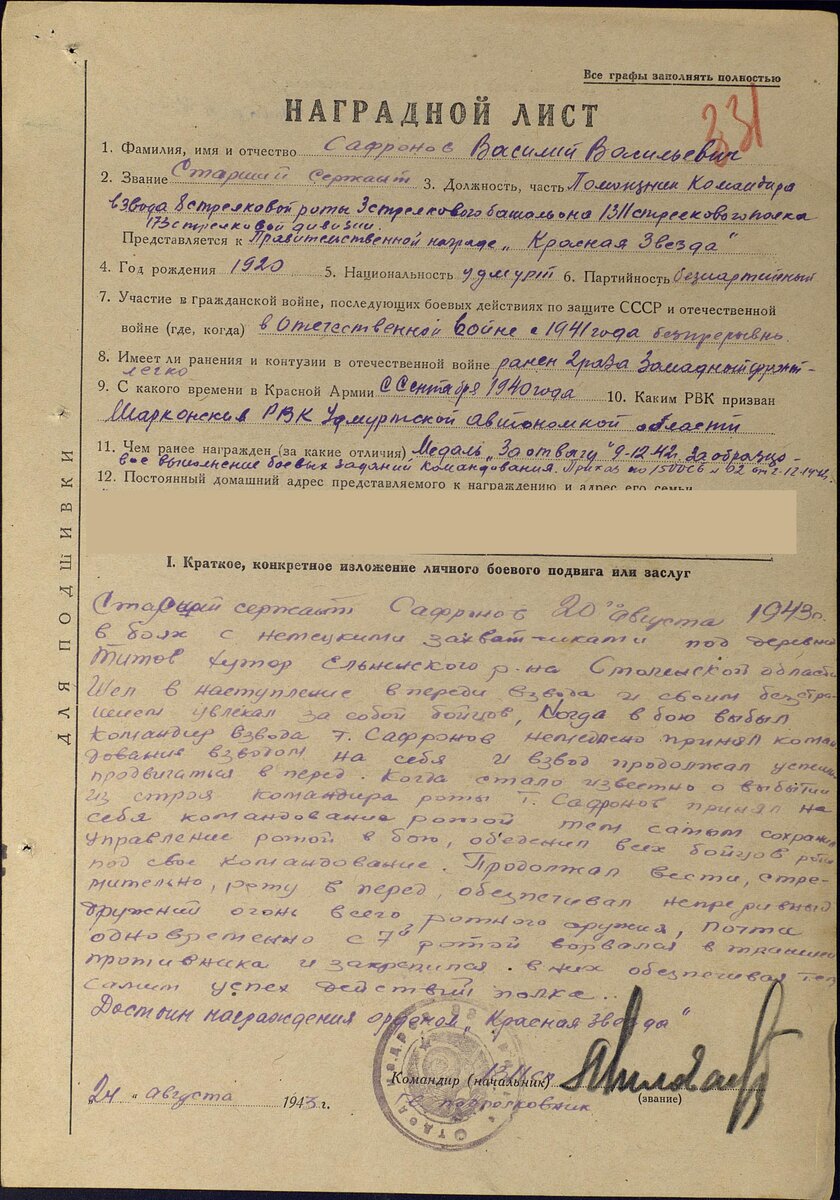 Все графы заполнять полностью
331
НАГРАДНОЙ ЛИСТ
1. Фамилия, имя и отчество Сафронов Василий Васильевич
2. Звание Старший сержант 3. Должность, часть Помощник Командира
взвода 8 стрелковой роты 3 стрелкового батальона 1311 стрелкового полка
173 стрелковой дивизии.
Представляется к Правительственной награде „Красная Звезда"
4. Год рождения 1920 5. Национальность удмурт 6. Партийность безпартийный
7. Участие в гражданской войне, последующих боевых действиях по защите СССР и отечественной
войне (где, когда) в Отечественной войне с 1941 года безпрерывно.
8. Имеет ли ранения и контузии в отечественной войне ранен 2 раза Западный фронт-
легко
9. С какого времени в Красной Армии с Сентября 1940 года 10. Каким РВК призван
Шарконский РВК Удмуртской автономной области
11. Чем ранее награжден (за какие отличия) Медаль „За отвагу" 9-12-42г. За образцо-
вое выполнение боевых заданий командивания. Приказ по 1500СП
12. Постоянный домашний адрес представляемого к награждению и адрес его семьи
I. Краткое, конкретное изложение личного боевого подвига или заслуг
Старший сержант Сафронов 20го августа 1943г.
в боях с немецкими захватчиками под деревней
Титов хутор Ельнинского р-на Смоленской области
Шел в наступление впереди взвода и своим безстра-
шием увлекал за собой бойцов, Когда в бою выбыл
командир взвода т. Сафронов немедлено принял коман
дование взводом на себя и взвод продолжал успешно
продвигаться в перед. Когда стало известно о выбытии
из строя командира роты т. Сафронов принял на
себя командование ротой тем самым сохранил
управление ротой в бою, объеденил всех бойцов роты
под свое командование. Продолжал вести, стре-
мительно, роту в перед, обезпечивал непрерывный
дружний огонь всего ротного оружия, почти
одновременно с 7й ротой ворвался в траншеи
противника и закрепился в них обезпечивая тем
самым успех действий полка..
Достоин награждения орденом „Красная Звезда"
Командир (начальник) 1311 сп
гв. подполковник (звание)
24 „ августа 1943 г.
ДЛЯ ПОДШИВКИ